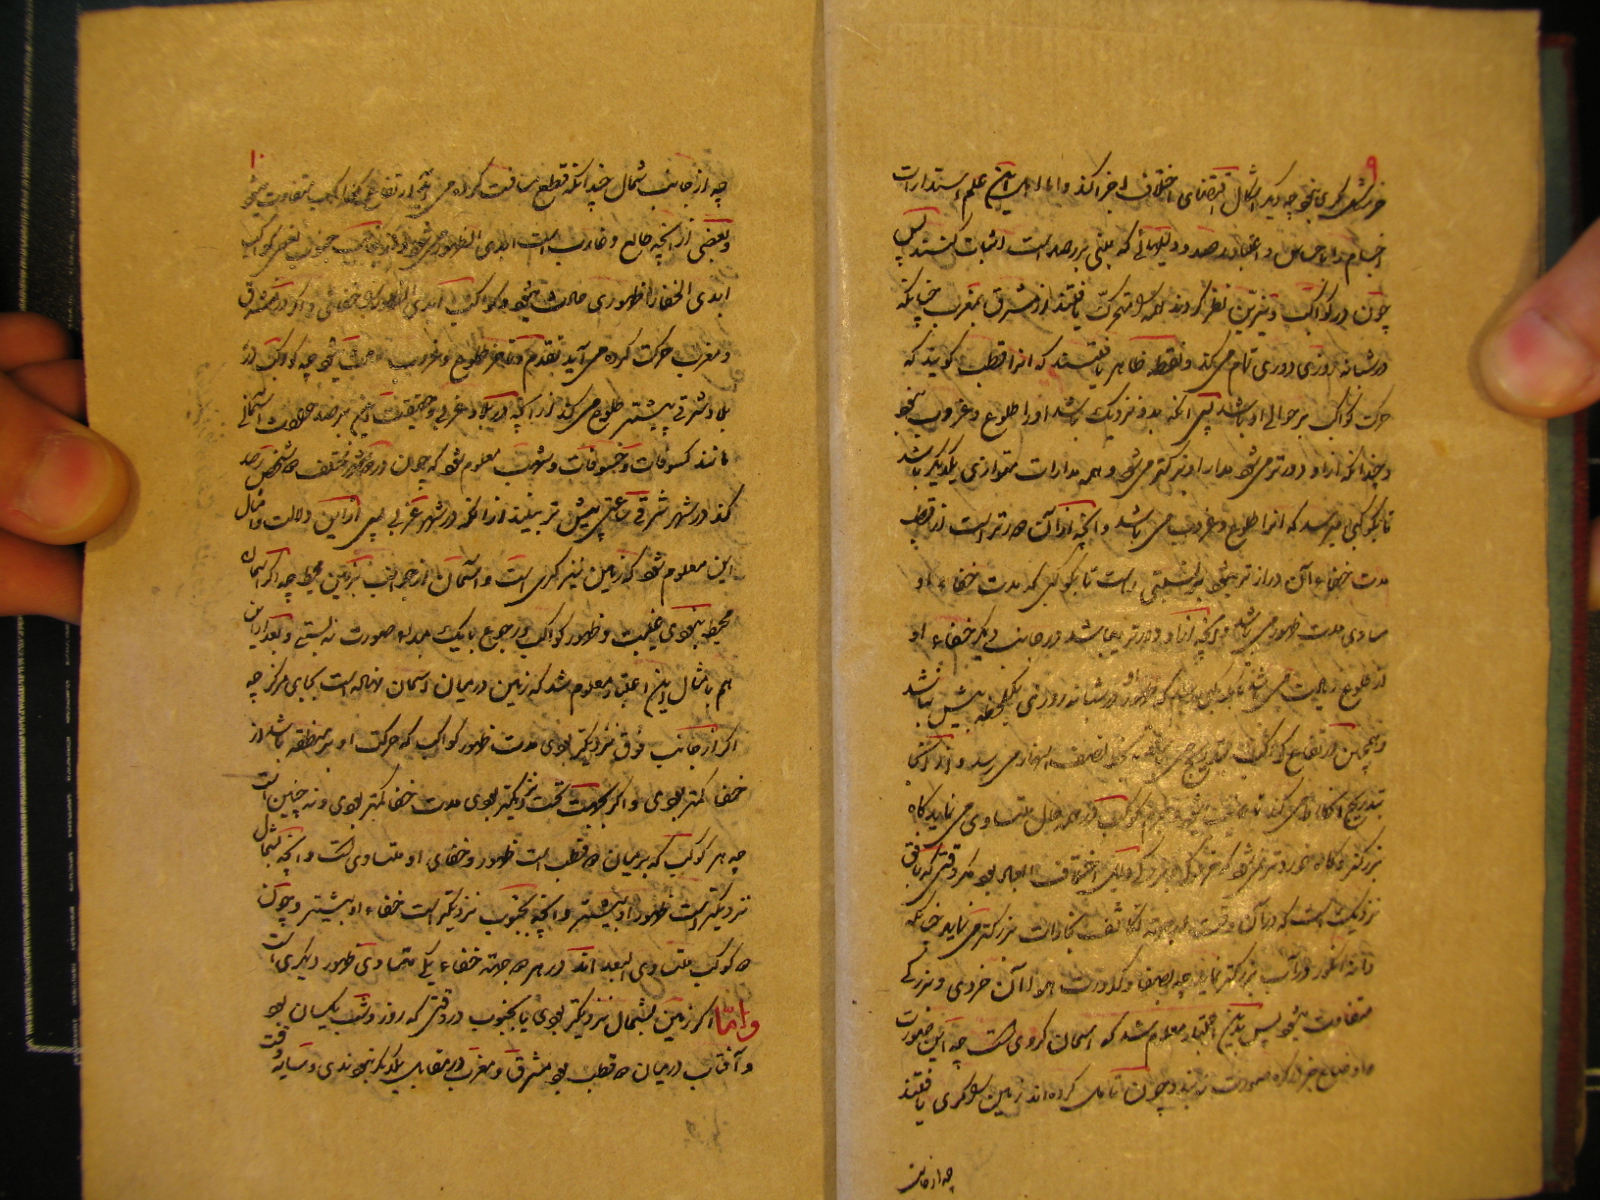 ۹
جز شکل کری نبود چه دیگر اشکال اقتضای اختلاف اجزا کند و اما اهل این علم استدارات
اجسام را به احساس و اعتبار رصد و دلایلی که مبنی بر رصد است اثبات کنند پس
چون در کواکب و نیرین نظر کردند همه را متحرک یافتند از مشرق بمغرب چنانکه
در شبانه روزی دوری تمام می کند و نقطه ظاهر یافتند که آنرا قطب گویند که
حرکت کواکب بر حوالی او باشد پس آنکه بدو نزدیک باشد او را طلوع و غروب نبود
و چندانکه ازو دورتر می شود مدار او بزرگتر می شود و همه مدارات متوازی یکدیگر باشد
تا بکوکبی رسد که آنرا طلوع و غروب می باشد و آنچه از آن دورتر است از قطب
مدت خفاء آن درازتر بود بر نسبتی راست تا بکوکبی که مدت خفاء او
مساوی مدت ظهور می باشد و آنچه ازو دورتر باشد در جانب دیگر خفاء او
از طلوع زیادت می شود تا بکوکبی رسد که ظهور او در شبانه روزی یک لحظه بیش نباشد
و همچنین ارتفاع کواکب بتدریج می باشد تا بحد نصف النهار می رسد و از آنجا
بتدریج انحطاط می کند تا غایب شود و جرم کوکب در همه حال متساوی می نماید نه گاه
بزرگتر و گاه خوردتر نمی شود که خردی و بزرگی را یک اختلاف ابعاد بود مگر وقتی که بافق
نزدیک است که در آن وقت از جهت تکاثف بخارات بزرگتر می نماید چنانکه
دانه انگور در آب بزرگتر نماید چه بصفا و کدورت هوا آن خردی و بزرگی
متفاوت شود پس بدین اعتبار معلوم شد که آسمان کروی است چه این صورت
و اوضاع جز در کره صورت نبندد و چون تأمل کرده اند زمین را کری یافتند
چه از جانب
۱۰
چه از جانب شمال چندانکه قطع مسافت کرده می آید ارتفاع کواکب متفاوت میشود
و بعضی از آنچه طالع و غارب است ابدی الظهور می شود و از جانب جنوب بعضی کواکب
ابدی الخفا را ظهوری حادث شود و کواکب ابدی الظهور را خفائی و اگر در مشرق
و مغرب حرکت کرده می آید تقدم و تاخر طلوع و غروب حادث شود چه کواکب در
بلاد شرقی پیشتر طلوع می کند از آنکه در بلاد غربی و حقیقت این برصد حوادث آسمانی
مانند کسوفات و خسوفات و شهب معلوم شود که چون در دو شهر مختلف دو شخص رصد
کند در شهر شرقی بساعتی پیش تر بینند از آنکه در شهر غربی پس از این دلالت و امثال
این معلوم شود که زمین نیز کری است و آسمان از جوانب بزمین محیط چه اگر آسمان
محیط نبودی غیبت و ظهور کواکب و رجوع با یک مبداء صورت نه بستی و بعد از این
هم بامثال این اعتبار معلوم شد که زمین در میان آسمان نهاده است بجای مرکز چه
اگر از جانب فوق نزدیکتر بودی مدت ظهور کواکب که حرکت او بر منطقه باشد از
خفا کمتر بودی و اگر بجهت تحت نزدیکتر بودی مدت خفا کمتر بودی و نه چنین است
چه هر کوکب که بر میان دو قطب است ظهور و خفای او متساوی است و آنچه بشمال
نزدیکتر است ظهور او بیشتر و آنچه بجنوب نزدیکتر است خفاء او بیشتر و چون
دو کوکب متساوی البعد اند در هر دو جهة خفاء یکی متساوی ظهور دیگری است
و اما اگر زمین بشمال نزدیکتر بودی یا بجنوب در وقتی که روز و شب یکسان بود
و آفتاب در میان دو قطب بود مشرق و مغرب در مقابل یکدیگر نبودندی و سایه وقت